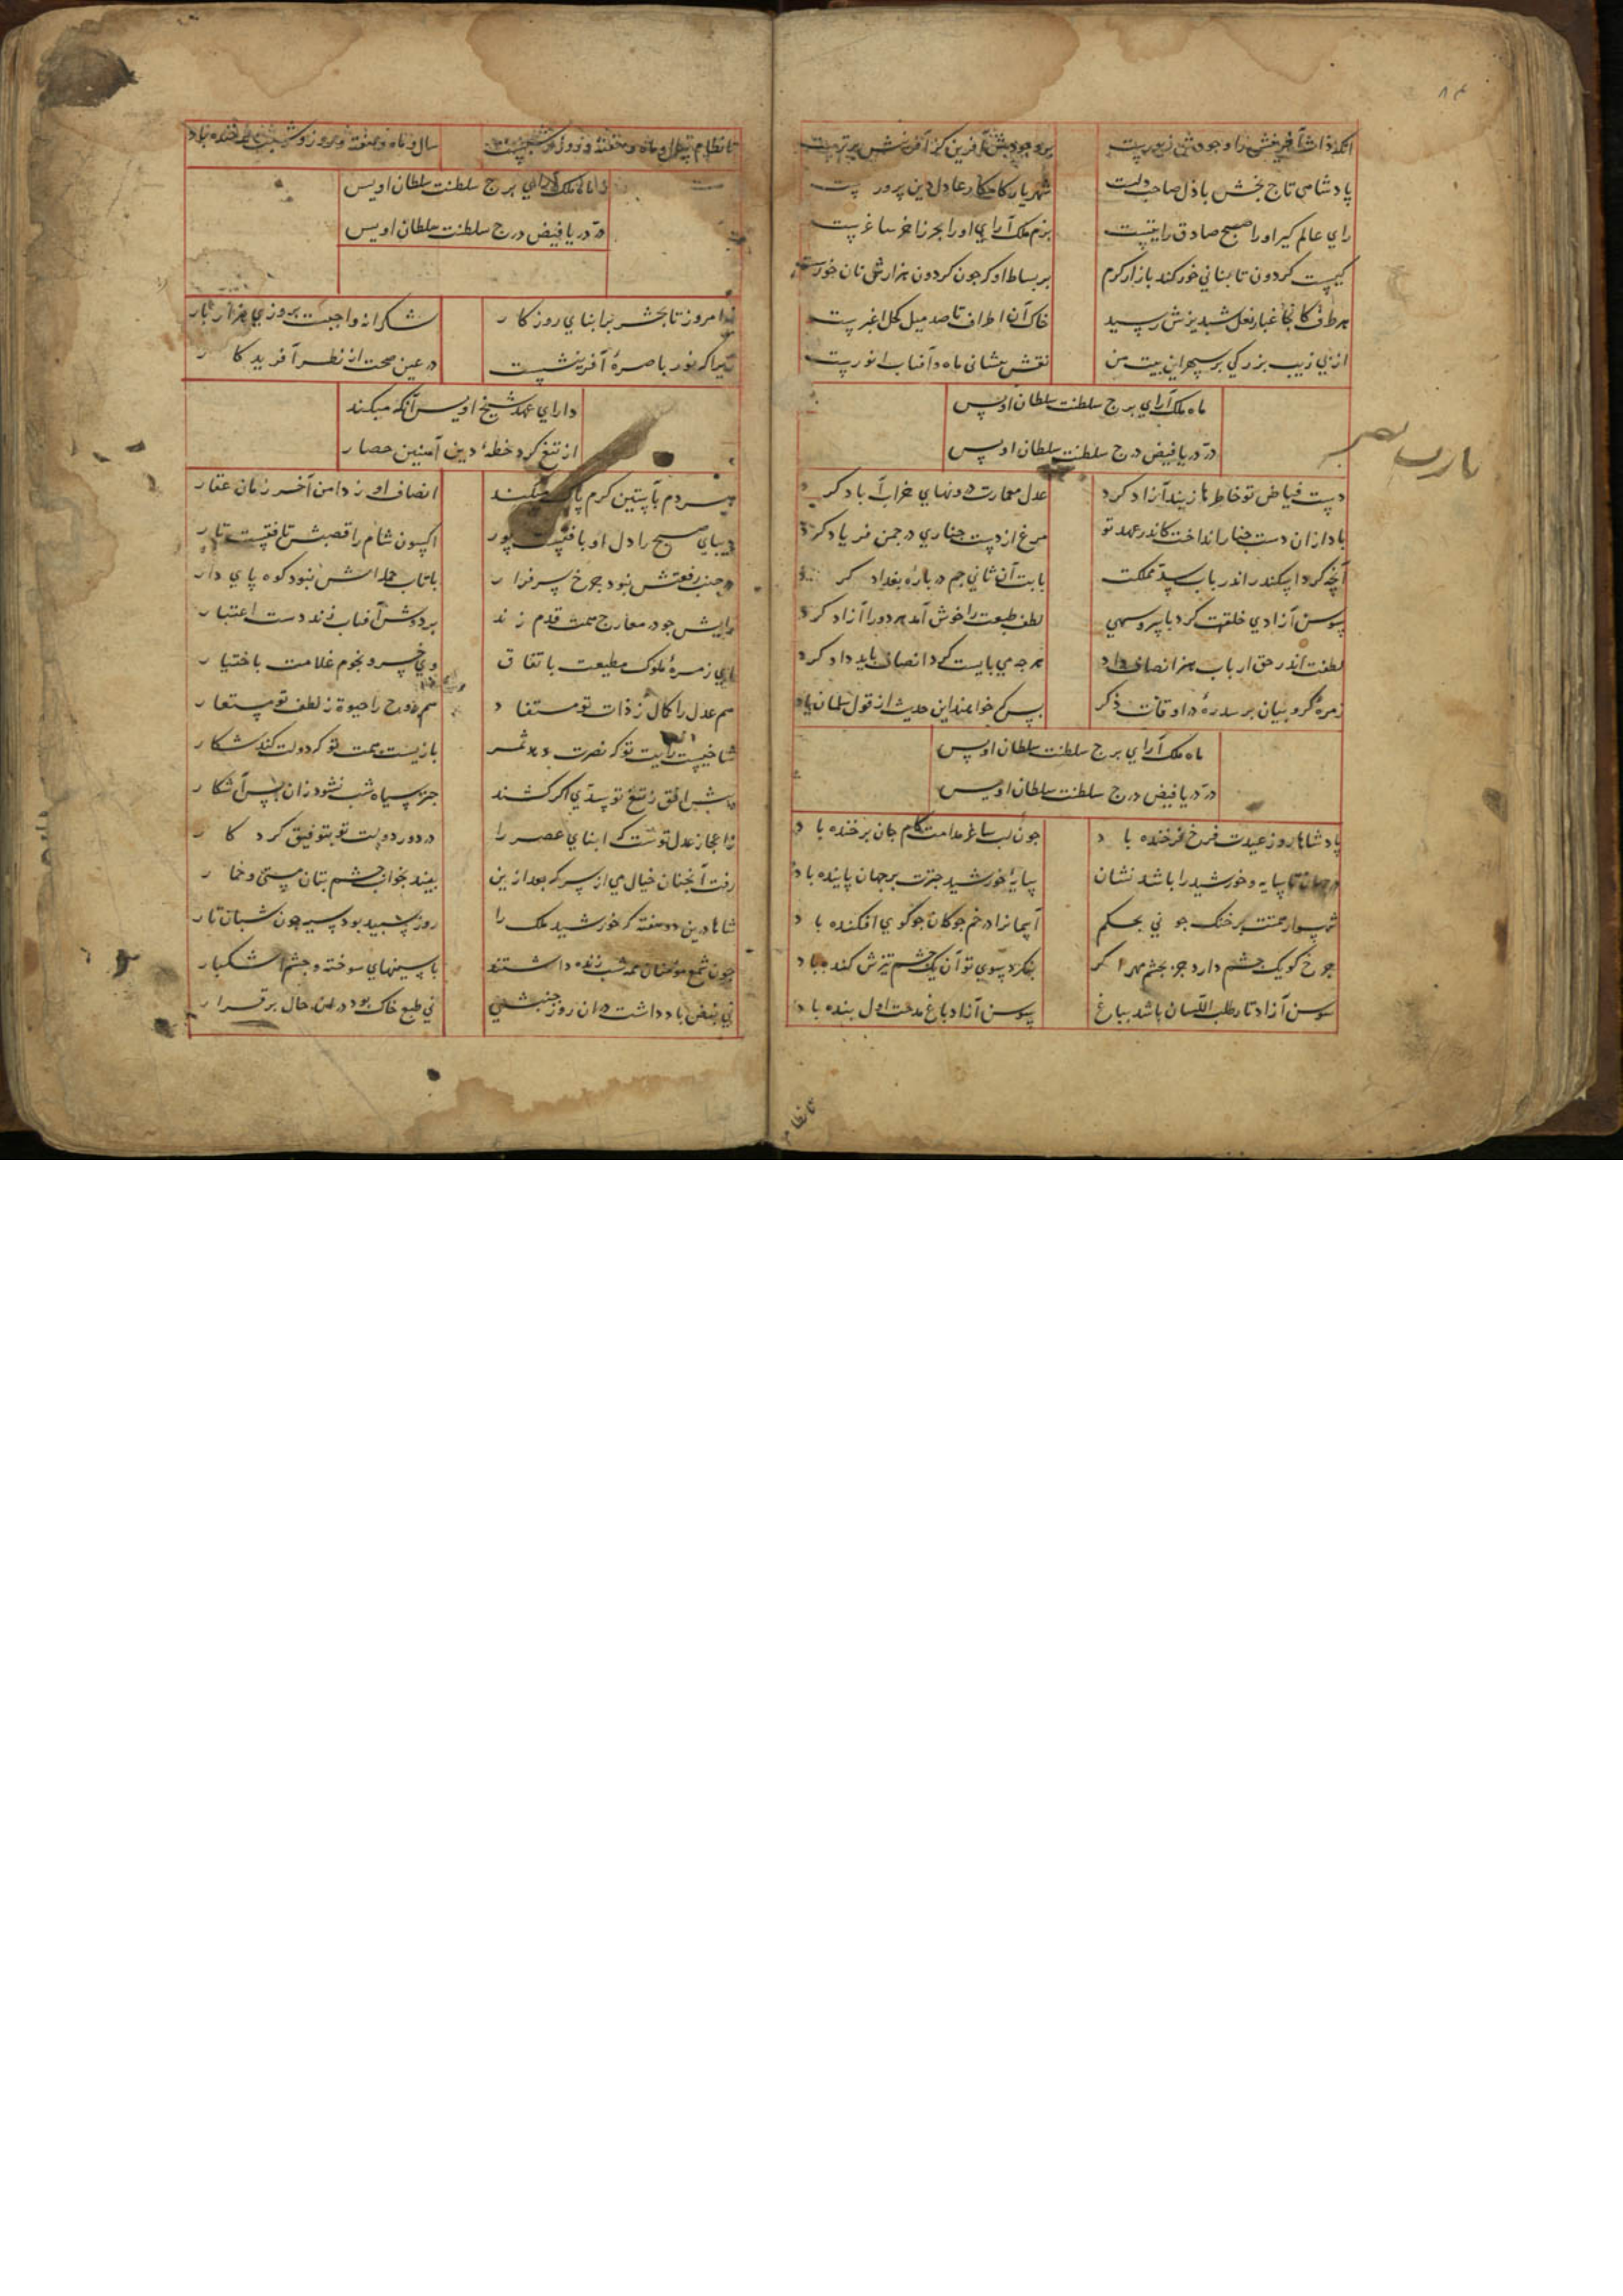 ۸۴
آنکه ذاتش آفرینش را وجودش زیورست بر وجودش آفرین کز آفرینش برترست
پادشاهی تاج بخش باذل صاحب دلست شهریار کامکار عادل دین پرورست
رای عالم کیر او را صبح صادق رایتیست بزم ملک آرای او را بحر زاخر ساغرست
کیست کردون تا بنانی خور کند بازار کرم بر بساط او که جون کردون هزارش نان خورست
هر طرف کانجا غبار نعل شبدیزش رسید خاک آن اطراف تا صد میل کحل اغبرست
از پی زیب بزرکی بر سپهر این بیت من نقش پیشانی ماه و آفتاب انورست
ماه ملک آرای برج سلطنت سلطان اویس
در دریا فیض درج سلطنت سلطان اویس
یارب
دست فیاض تو خاطرها ز بند آزاد کرد عدل معمارت درونهای خراب آباد کرد
باد ازان دست جنار انداخت کاندر عهد تو مرغ از دست جناری در جمن فریاد کرد
آنچه کرد اسکندر اندر باب سد مملکت بابت آن ثانی جم در باره بغداد کرد
سوسن آزادی خلقت کرد با سرو سهی لطف طبعت را خوش آمد هر دو را آزاد کرد
لطفت اندر حق ارباب هنر انصاف داد هرجه می بایست کرد انصاف باید داد کرد
زمره کروبیان بر سدره در اوقات ذکر بس که خوانند این حدیث از قول سلمان یاد
ماه ملک آرای برج سلطنت سلطان اویس
در دریا فیض درج سلطنت سلطان اویس
پادشاها روز عیدت فرخ فرخنده باد جون لب ساغر مدامت کام جان برخنده باد
در جهان تا سایه و خورشید را باشد نشان سایه خورشید جترت بر جهان پاینده باد
شهسوار همتت بر خنک جونی بحکم آسمانرا در خم جوکان جو کوی افکنده باد
جرخ کو یک جشم دارد جز بجشم مهر اکر بنکرد سوی تو آن یک جشم تیرش کنده باد
سوسن آزاد تا رطب اللسان باشد بباغ سوسن آزاد باغ مدحت اول بنده باد
تا نظام
تا نظام سال و ماه و هفته و روز و شبست سال و ماه و هفته و روز و شبت فرخنده باد
ماه ملک آرای برج سلطنت سلطان اویس
در دریا فیض درج سلطنت سلطان اویس
امروز تا بحشر بر ابنای روزکار شکرانه واجبست بروزی هزار بار
زیرا که نور باصره آفرینشست در عین صحت از نظر آفریدکار
دارای عهد شیخ اویس آنکه میکند
از تیغ کرد خطه دین آهنین حصار
مردم بآستین کرم پاک میکند انصاف او ز دامن آخر زمان غبار
دیبای صبح را دل او بافتست پود اکسون شام را قصبش تافتست تار
در جنب رفعتش نبود جرخ سرفراز با تاب حمله اش نبود کوه پای دار
رایش جو در معارج همت قدم زند بر دوش آفتاب زند دست اعتبار
ای زمره ملوک مطیعت باتفاق وی خسرو نجوم غلامت باختیار
هم عدل را کمال ز ذات تو مستفاد هم روح را حیوة ز لطف تو مستعار
شاخیست رایت تو که نصرت دهد ثمر بازیست همت تو که دولت کند شکار
در پیش افق ز تیغ تو سدی اکر کشند جز سیاه شب نشود زان پس آشکار
از اعجاز عدل توست که ابنای عصر را در دور دولت تو بتوفیق کردکار
رفت آنجنان خیال می از سر که بعد ازین بیند بخواب جشم بتان مستی و خمار
شاها درین دو هفته که خورشید ملک را روز سپید بود سیه جون شبان تار
جون شمع مومنان همه شب زنده داشتند با سینهای سوخته و جشم اشکبار
نی نبض باد داشت دران روز جنبشی نی طبع خاک بود دران حال برقرار